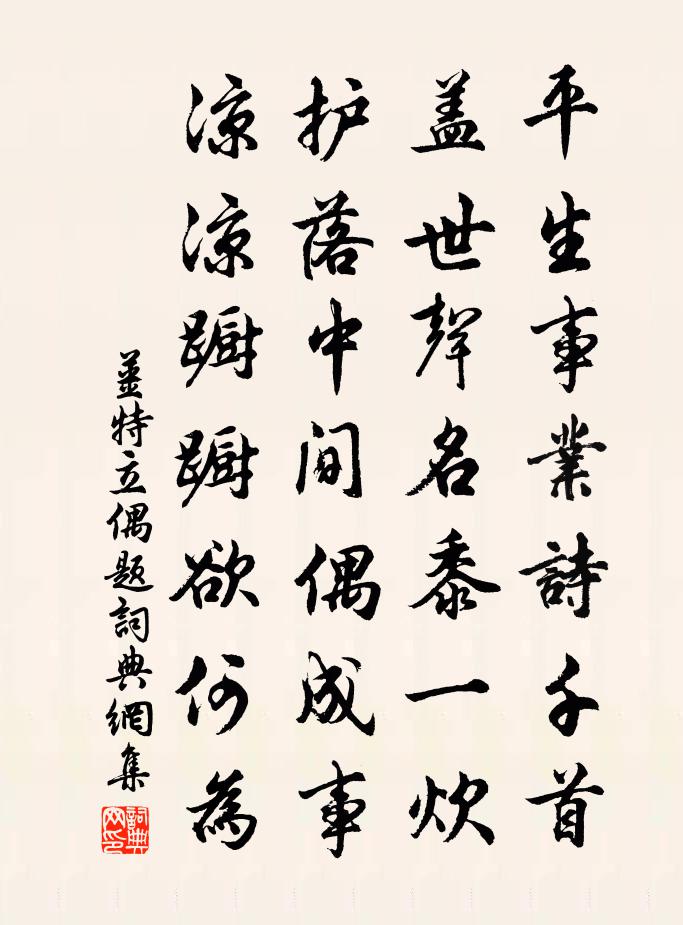 平生事業詩千首
盖世聲名黍一炊
护落中间偶成事
凉凉踽踽欲何為
姜特立偶题詞典網集
詞典網印